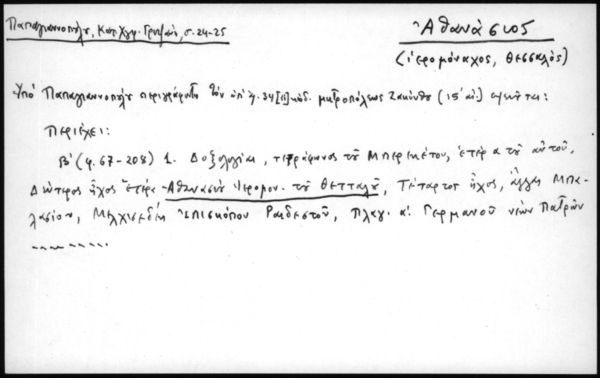 Παπαγιαννοπούλου, Κατ. Χγφ. σ. 24-25
Ἀθανάσιος
(ἱερομόναχος, Θεσσαλός)
Ὑπό Παπαγιαννοπούλου περιγράφεται τῶν ὑπ' ἀ. 34 [II] κώδ. μητροπόλεως Ζακύνθου (15' αἰ.)
Περιέχει:
Β' (φ. 67-208) 1. Δοξολογίαι, τετράφωνος τοῦ Μπερεκέτου, ἑτέρα τοῦ αὐτοῦ,
Δεύτερος ἦχος ἑτέρα Ἀθανασίου ἱερομον. τοῦ Θετταλοῦ, Τέταρτος ἦχος, ἄλλη Μπα-
λασίου, Μελχισεδέκ Ἐπισκόπου Ραιδεστοῦ, Πλαγ. α'. Γερμανοῦ νέων Πατρῶν